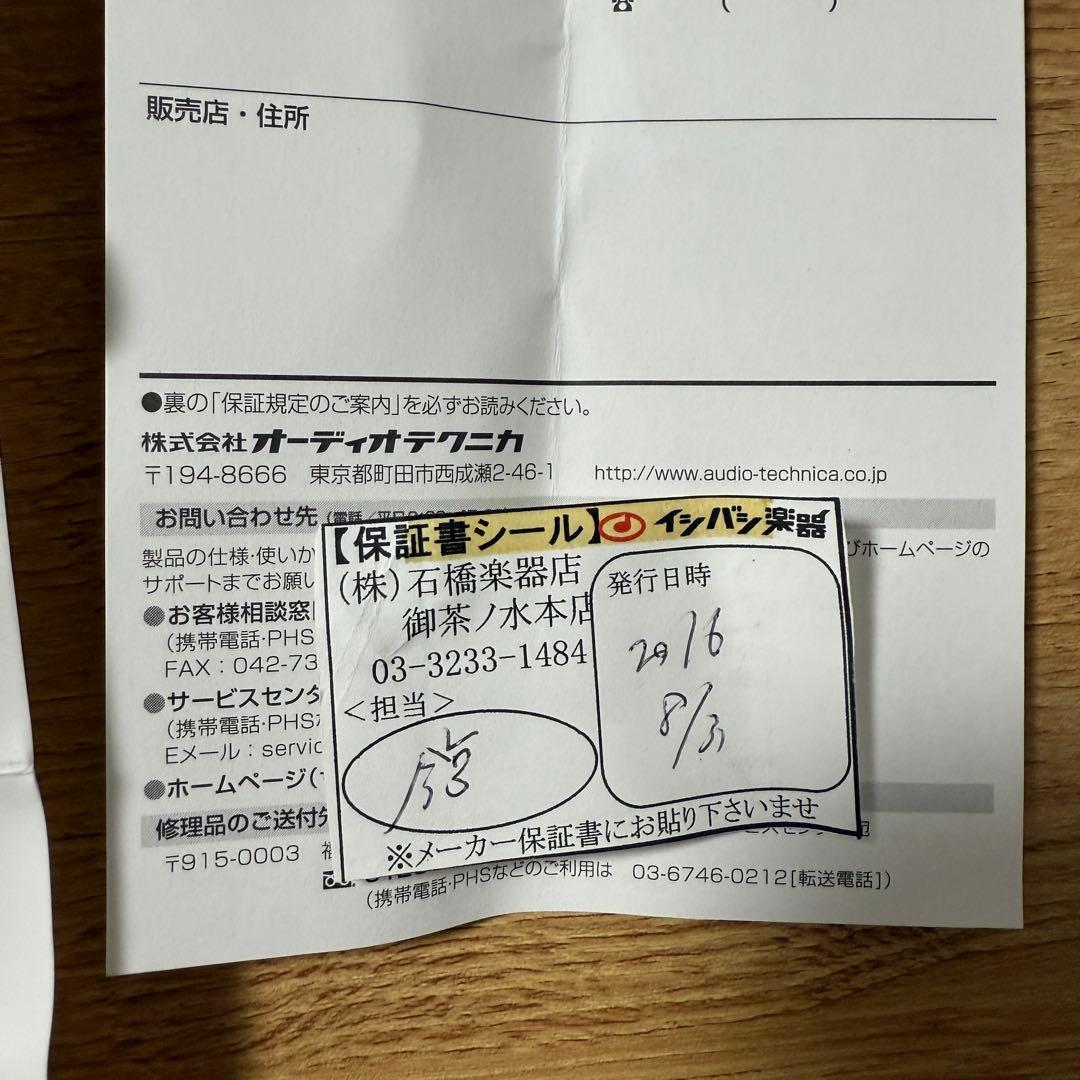 ☎ ( )
販売店・住所
●裏の「保証規定のご案内」を必ずお読みください。
株式会社オーディオテクニカ
〒194-8666 東京都町田市西成瀬2-46-1 http://www.audio-technica.co.jp
お問い合わせ先
製品の仕様・使いか
びホームページの
サポートまでお願い
●お客様相談窓
(携帯電話・PHS
FAX:042-73
●サービスセンタ
(携帯電話・PHS
Eメール:servic
●ホームページ(
修理品のご送付
〒915-0003
(携帯電話・PHSなどのご利用は 03-6746-0212[転送電話])
【保証書シール】イシバシ楽器
(株)石橋楽器店
御茶ノ水本店
03-3233-1484
<担当>
発行日時
2016
8/31
※メーカー保証書にお貼り下さいませ